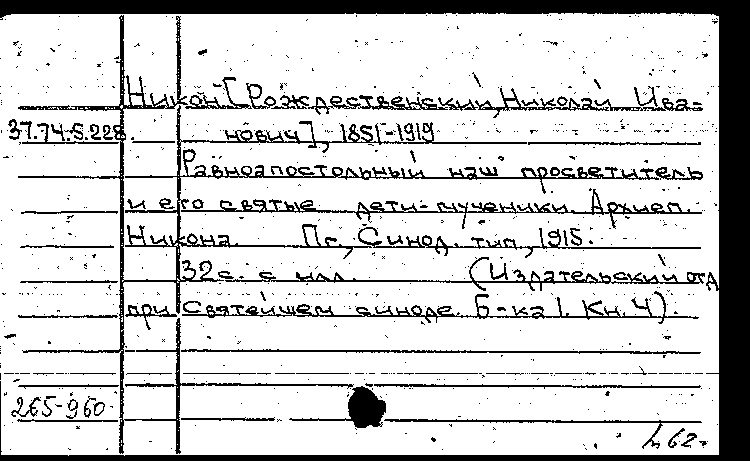 Никон [Рождественский, Николай Ива-
37.74.5.228. нович], 1851-1919
Равноапостольный наш просветитель
и его святые дети-мученики. Архиеп.
Никона. Пг., Синод. тип., 1915.
32с. с илл. (Издательский отд
при Святейшем синоде. Б-ка I. Кн. 4).
265-960
62